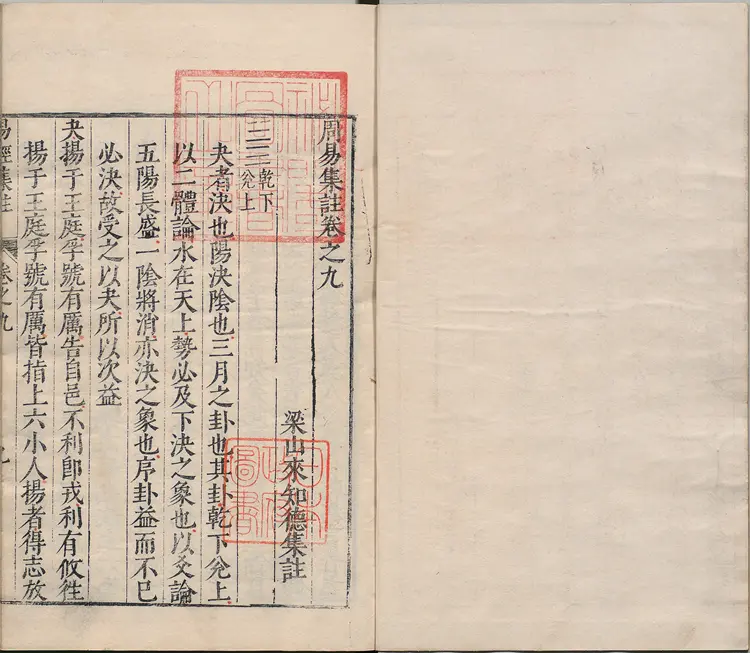 周易集註卷之九
梁山來知德集註
乾下
兊上
夬者決也陽決陰也三月之卦也其卦乾下兊上
以二體論水在天上勢必及下決之象也以爻論
五陽長盛一陰將消亦決之象也序卦益而不巳
必決故受之以夬所以次益
夬揚于王庭孚號有厲告自邑不利卽戎利有攸徃
揚于王庭孚號有厲皆指上六小人揚者得志放
易經集註
卷之九